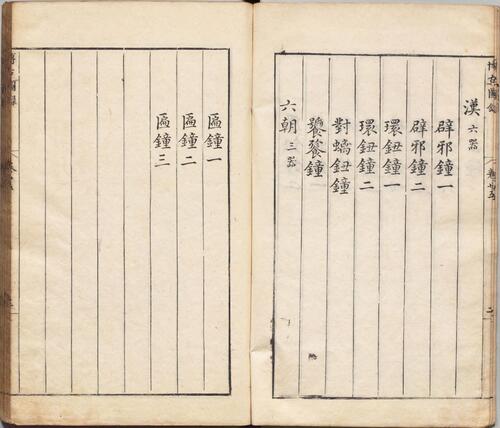 漢 六器
辟邪鐘一
辟邪鐘二
環鈕鐘一
環鈕鐘二
對螭鈕鐘
饕餮鐘
六朝 三器
匾鐘一
匾鐘二
匾鐘三